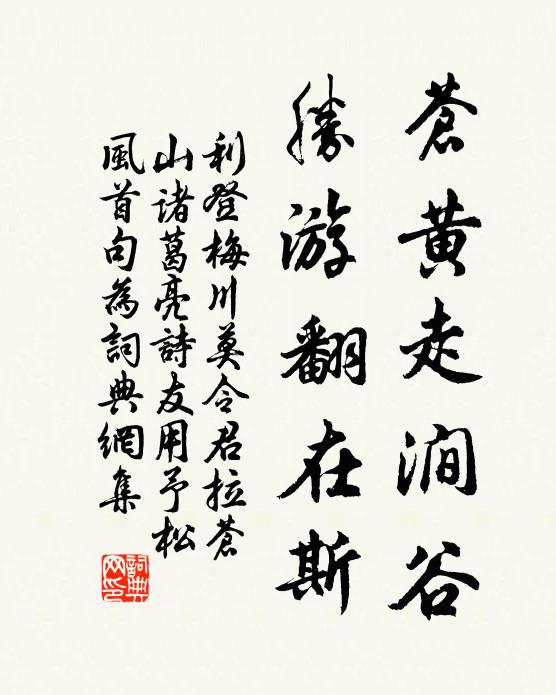 蒼黃走澗谷
勝游翻在斯
利登梅川莫令君拉蒼
山諸葛亮詩友用予松
風首句為詞典網集
詞典
网印